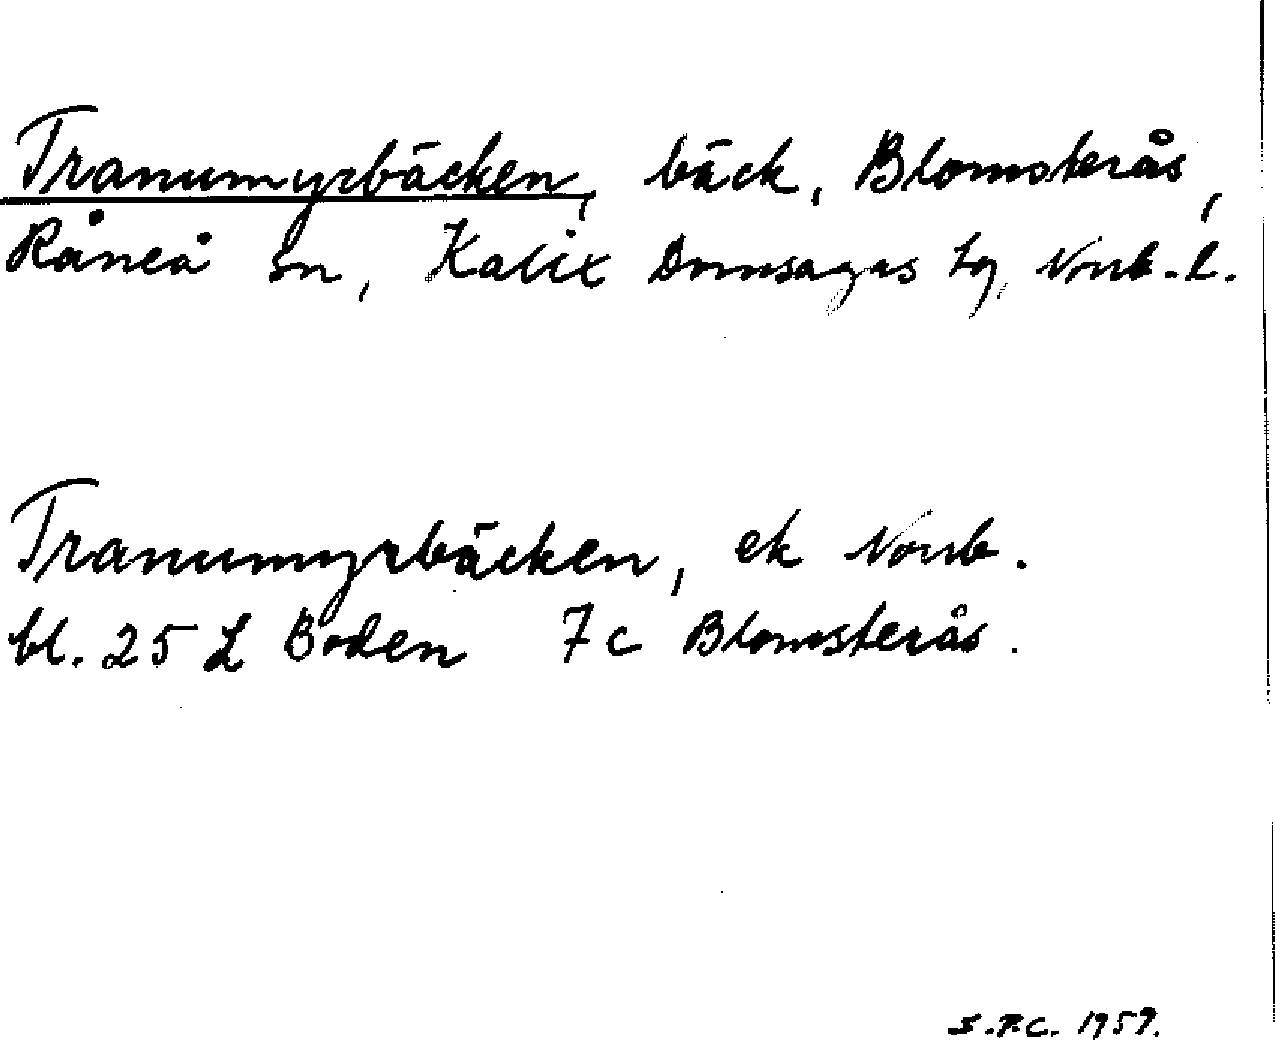 Tranumyrbäcken, bäck, Blomsterås,
Råneå sn, Kalix Domsagas tg, Norrb. l.
Tranumyrbäcken, ek Norrb.
bl. 25 L Boden 7c Blomsterås.
1959.